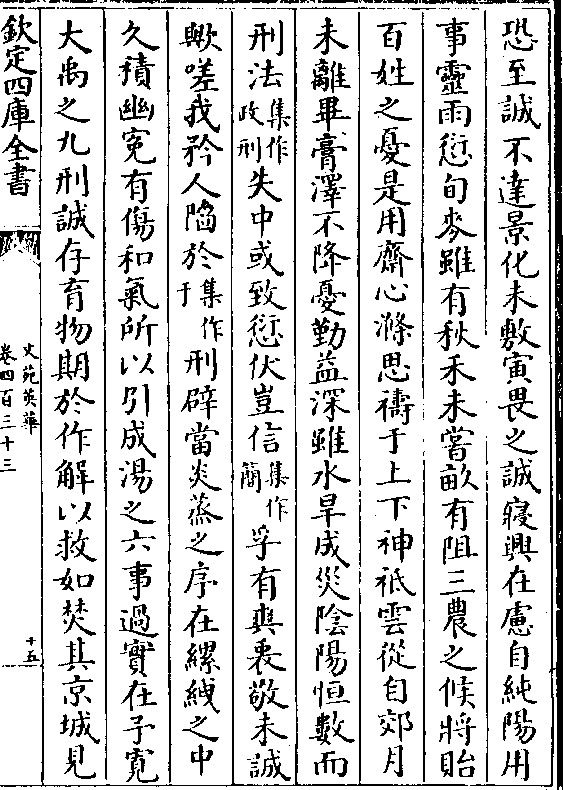 恐至誠不達景化未敷寅畏之誠寢興在慮自純陽用
事靈雨愆旬麥雖有秋禾未嘗畝有阻三農之候將貽
百姓之憂是用齋心滌思禱于上下神祗雲從自郊月
未離畢膏澤不降憂勤益深雖水旱成災陰陽恒數而
刑法集作政刑失中或致愆伏豈信集作簡孚有爽哀敬未誠
歟嗟我矜人陷於集作于刑辟當炎蒸之序在縲絏之中
久積幽寃有傷和氣所以引成湯之六事過實在予寛
大禹之九刑誠存育物期於作解以救如焚其京城見
欽定四庫全書
文苑英華
卷四百三十三
十五